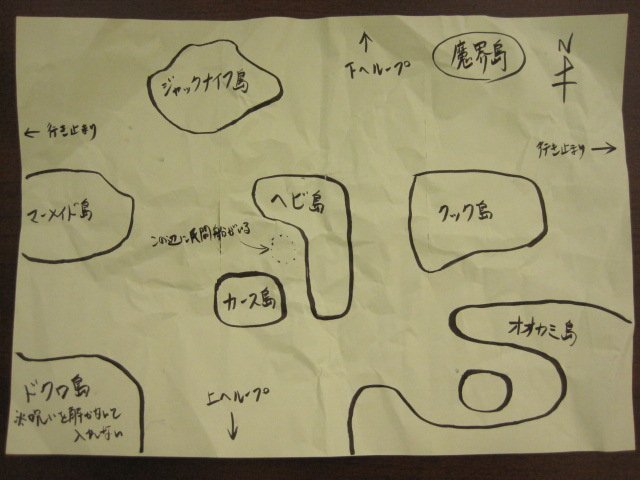 魔界島
N
下へループ
ジャックナイフ島
← 行き止まり
行き止まり →
ヘビ島
クック島
マーメイド島
この辺に民間船がいる
カース島
オオカミ島
ドクロ島
※呪いを解かないと
入れない
上へループ